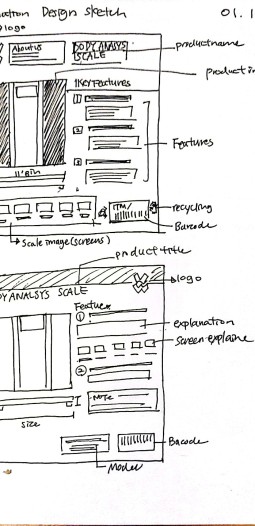 Design Sketch
01. 1
logo
About us
BODY ANALSYS
SCALE
productname
product
1Key Features
1
2
3
Features
11'8in
ITM/
recycling
Barcode
Scale image (screens)
product title
logo
DY ANALSYS SCALE
Feature
1
explanation
screen explaine
2
NOTE
size
Bacode
Model